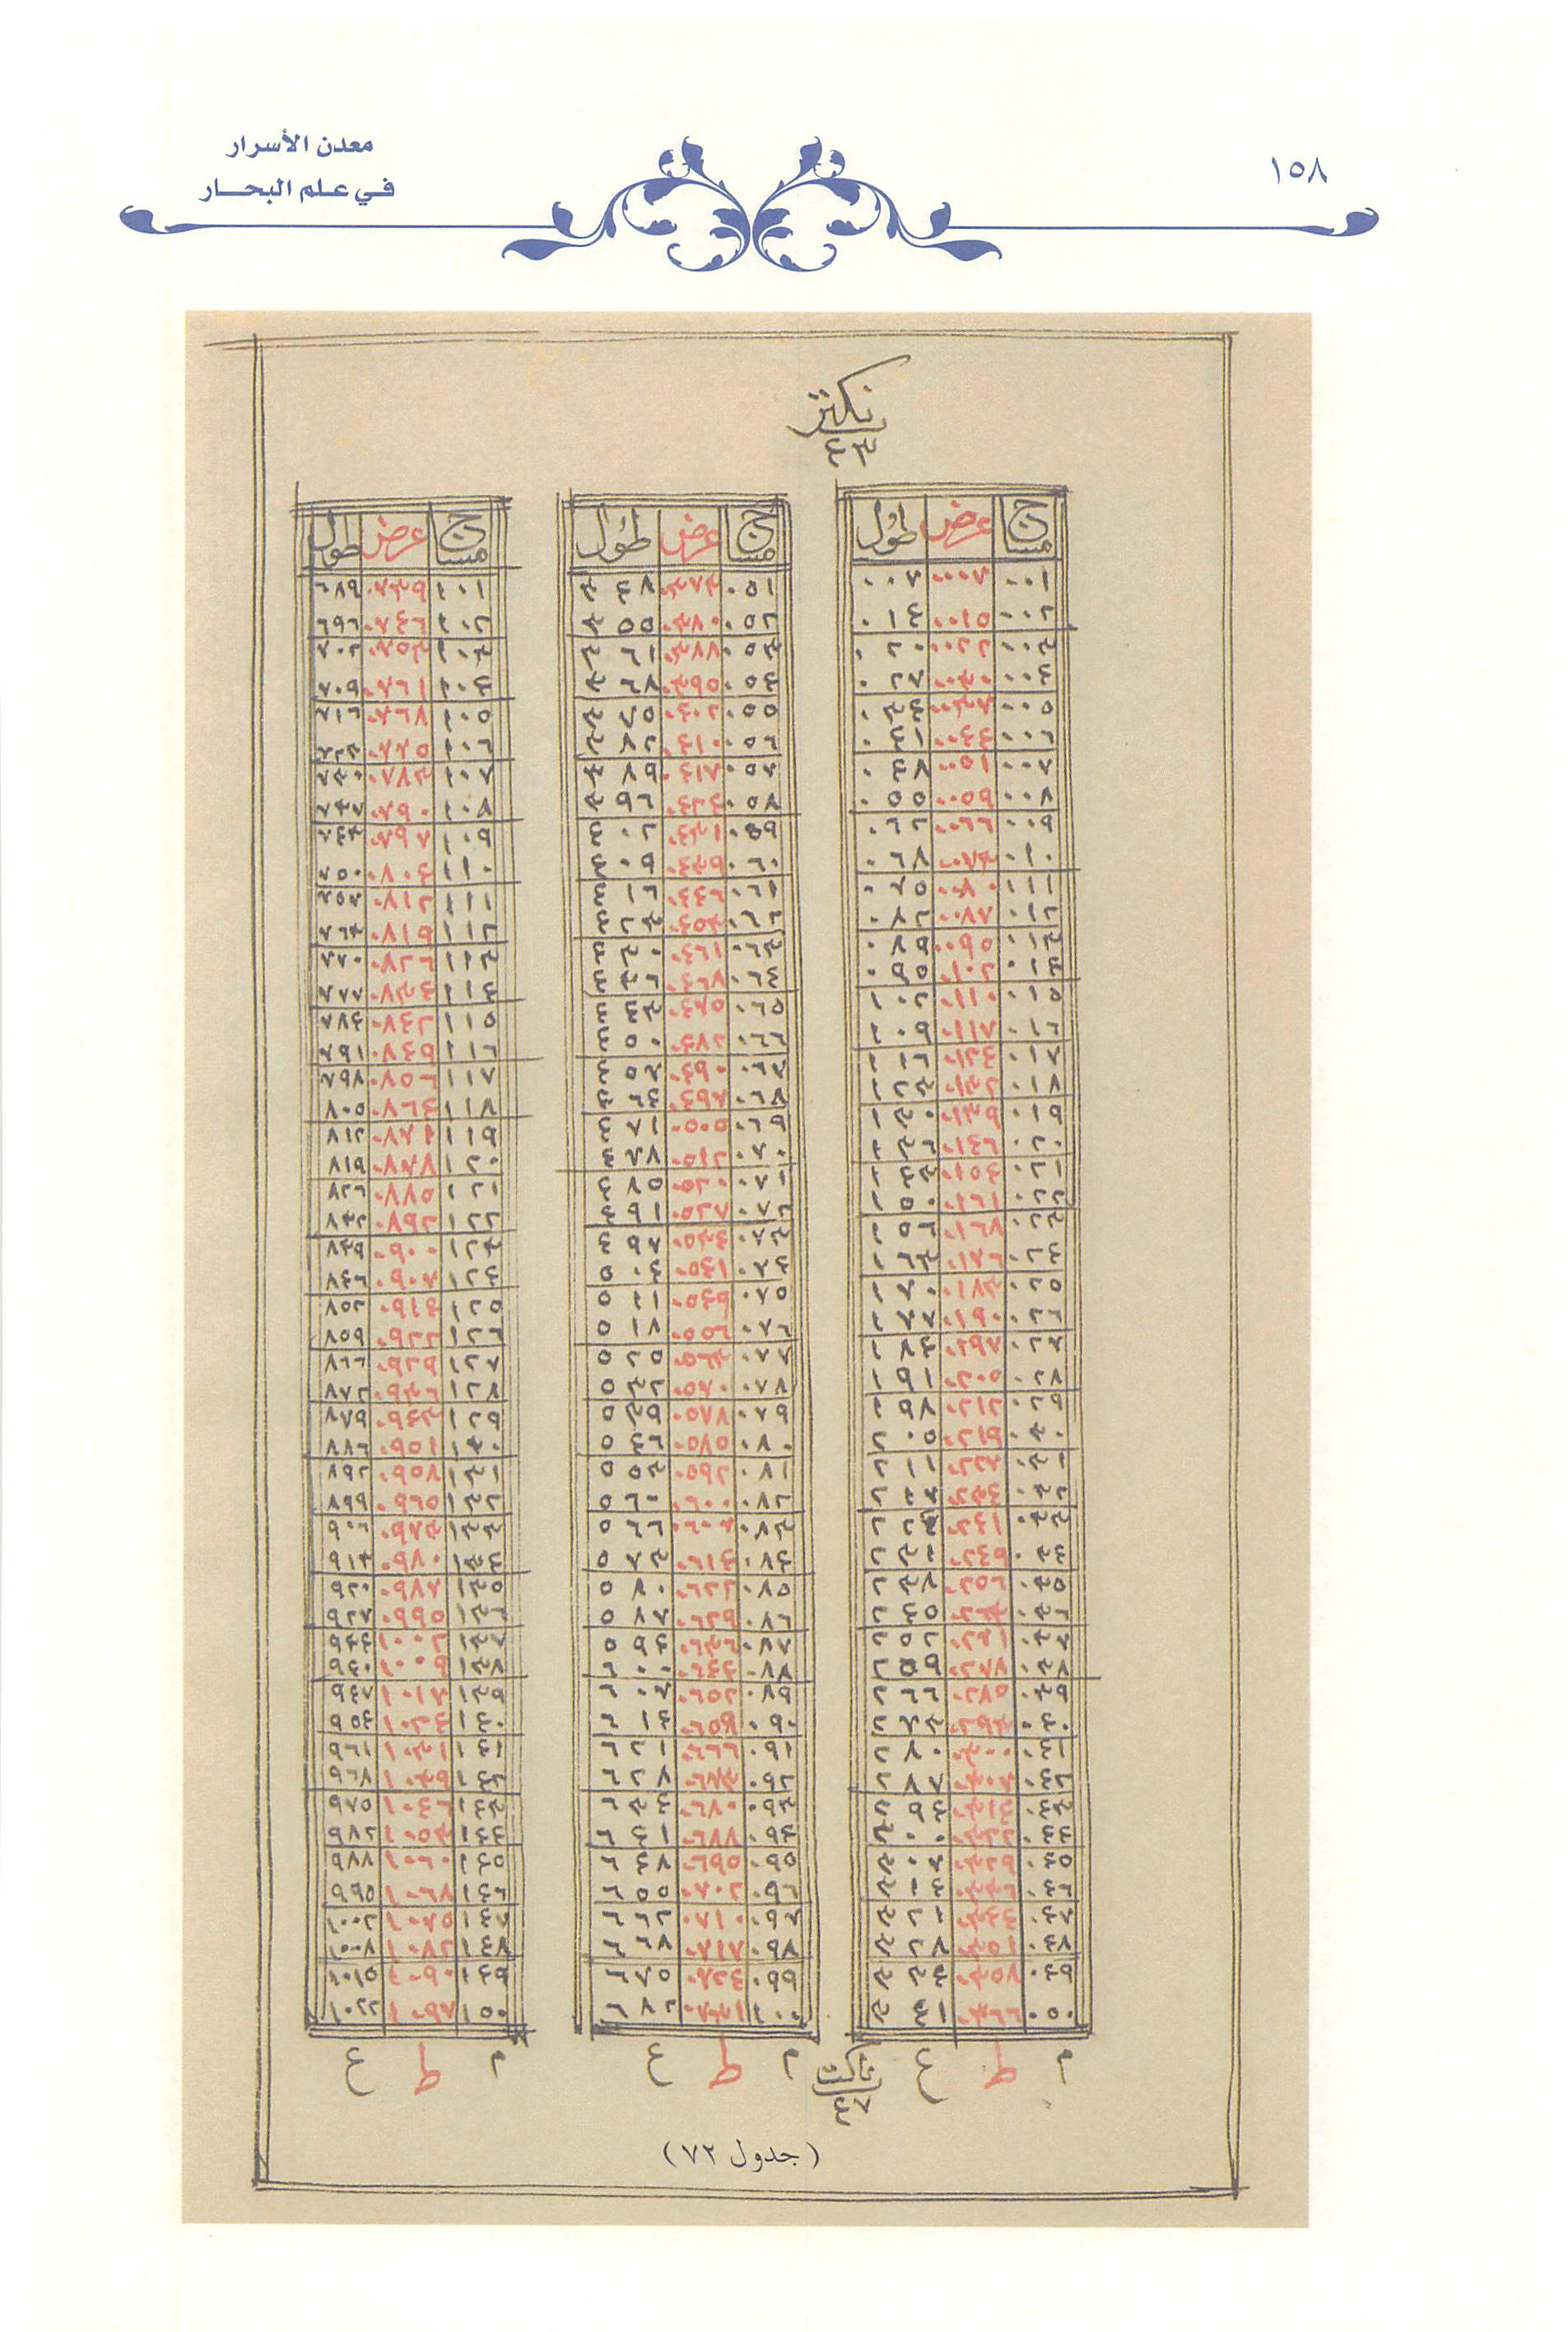 ١٥٨
معدن الأسرار
في علم البحار
نكتز
٤٣
مساج عرض طول
٠٠١ ٠٠٠٧ ٠٠٧
٠٠٢ ٠٠١٥ ٠١٤
٠٠٣ ٠٠٢٢ ٠٢٠
٠٠٤ ٠٠٣٠ ٠٢٧
٠٠٥ ٠٠٣٧ ٠٣٤
٠٠٦ ٠٠٤٤ ٠٤١
٠٠٧ ٠٠٥١ ٠٤٨
٠٠٨ ٠٠٥٩ ٠٥٥
٠٠٩ ٠٠٦٦ ٠٦٢
٠١٠ ٠٠٧٣ ٠٦٨
٠١١ ٠٠٨٠ ٠٧٥
٠١٢ ٠٠٨٧ ٠٨٢
٠١٣ ٠٠٩٥ ٠٨٩
٠١٤ ٠١٠٢ ٠٩٥
٠١٥ ٠١١٠ ١٠٢
٠١٦ ٠١١٧ ١٠٩
٠١٧ ٠١٢٤ ١١٦
٠١٨ ٠١٣٢ ١٢٣
٠١٩ ٠١٣٩ ١٣٠
٠٢٠ ٠١٤٦ ١٣٦
٠٢١ ٠١٥٤ ١٤٣
٠٢٢ ٠١٦١ ١٥٠
٠٢٣ ٠١٦٨ ١٥٦
٠٢٤ ٠١٧٦ ١٦٣
٠٢٥ ٠١٨٣ ١٧٠
٠٢٦ ٠١٩٠ ١٧٧
٠٢٧ ٠١٩٧ ١٨٤
٠٢٨ ٠٢٠٥ ١٩١
٠٢٩ ٠٢١٢ ١٩٨
٠٣٠ ٠٢١٩ ٢٠٥
٠٣١ ٠٢٢٧ ٢١١
٠٣٢ ٠٢٣٤ ٢١٧
٠٣٣ ٠٢٤١
٠٣٤ ٠٢٤٩
٠٣٥ ٠٢٥٦ ٢٣٨
٠٣٦ ٠٢٦٣ ٢٤٥
٠٣٧ ٠٢٧١ ٢٥٢
٠٣٨ ٠٢٧٨ ٢٥٩
٠٣٩ ٠٢٨٥ ٢٦٦
٠٤٠ ٠٢٩٣ ٢٧٣
٠٤١ ٠٣٠٠ ٢٨٠
٠٤٢ ٠٣٠٧ ٢٨٧
٠٤٣ ٠٣١٤ ٢٩٤
٠٤٤ ٠٣٢٢ ٣٠٠
٠٤٥ ٠٣٢٩ ٣٠٧
٠٤٦ ٠٣٣٦ ٣١٤
٠٤٧ ٠٣٤٤ ٣٢١
٠٤٨ ٠٣٥١ ٣٢٨
٠٤٩ ٠٣٥٨ ٣٣٤
٠٥٠ ٠٣٦٦ ٣٤١
م ط ع
مساج عرض طول
٠٥١ ٠٣٧٣ ٣٤٨
٠٥٢ ٠٣٨٠ ٣٥٥
٠٥٣ ٠٣٨٨ ٣٦١
٠٥٤ ٠٣٩٥ ٣٦٨
٠٥٥ ٠٤٠٢ ٣٧٥
٠٥٦ ٠٤١٠ ٣٨٢
٠٥٧ ٠٤١٧ ٣٨٩
٠٥٨ ٠٤٢٤ ٣٩٦
٠٥٩ ٠٤٣١ ٤٠٢
٠٦٠ ٠٤٣٩ ٤٠٩
٠٦١ ٠٤٤٦ ٤١٦
٠٦٢ ٠٤٥٣ ٤٢٣
٠٦٣ ٠٤٦١ ٤٣٠
٠٦٤ ٠٤٦٧ ٤٣٦
٠٦٥ ٠٤٧٥ ٤٤٣
٠٦٦ ٠٤٨٢ ٤٥٠
٠٦٧ ٠٤٩٠ ٤٥٧
٠٦٨ ٠٤٩٨ ٤٦٤
٠٦٩ ٠٥٠٥ ٤٧١
٠٧٠ ٠٥١٢ ٤٧٨
٠٧١ ٠٥٢٠ ٤٨٥
٠٧٢ ٠٥٢٧ ٤٩١
٠٧٣ ٠٥٣٤ ٤٩٧
٠٧٤ ٠٥٤١ ٥٠٤
٠٧٥ ٠٥٤٩ ٥١١
٠٧٦ ٠٥٥٦ ٥١٨
٠٧٧ ٠٥٦٣ ٥٢٥
٠٧٨ ٠٥٧٠ ٥٣٢
٠٧٩ ٠٥٧٨ ٥٣٩
٠٨٠ ٠٥٨٥ ٥٤٦
٠٨١ ٠٥٩٢ ٥٥٣
٠٨٢ ٠٦٠٠ ٥٦٠
٠٨٣ ٠٦٠٧ ٥٦٦
٠٨٤ ٠٦١٤ ٥٧٣
٠٨٥ ٠٦٢٢ ٥٨٠
٠٨٦ ٠٦٢٩ ٥٨٧
٠٨٧ ٠٦٣٦ ٥٩٤
٠٨٨ ٠٦٤٤ ٦٠٠
٠٨٩ ٠٦٥٢ ٦٠٧
٠٩٠ ٠٦٥٩ ٦١٤
٠٩١ ٠٦٦٦ ٦٢١
٠٩٢ ٠٦٧٣ ٦٢٨
٠٩٣ ٠٦٨٠ ٦٣٤
٠٩٤ ٠٦٨٨ ٦٤١
٠٩٥ ٠٦٩٥ ٦٤٨
٠٩٦ ٠٧٠٢ ٦٥٥
٠٩٧ ٠٧١٠ ٦٦٢
٠٩٨ ٠٧١٧ ٦٦٨
٠٩٩ ٠٧٢٤ ٦٧٥
١٠٠ ٠٧٣١ ٦٨٢
م ط ع
مساج عرض طول
١٠١ ٠٧٣٩ ٦٨٩
١٠٢ ٠٧٤٦ ٦٩٦
١٠٣ ٠٧٥٣ ٧٠٢
١٠٤ ٠٧٦١ ٧٠٩
١٠٥ ٠٧٦٨ ٧١٦
١٠٦ ٠٧٧٥ ٧٢٣
١٠٧ ٠٧٨٣ ٧٣٠
١٠٨ ٠٧٩٠ ٧٣٧
١٠٩ ٠٧٩٧ ٧٤٣
١١٠ ٠٨٠٤ ٧٥٠
١١١ ٠٨١٢ ٧٥٧
١١٢ ٠٨١٩ ٧٦٤
١١٣ ٠٨٢٦ ٧٧٠
١١٤ ٠٨٣٤ ٧٧٧
١١٥ ٠٨٤٢ ٧٨٤
١١٦ ٠٨٤٩ ٧٩١
١١٧ ٠٨٥٦ ٧٩٨
١١٨ ٠٨٦٤ ٨٠٥
١١٩ ٠٨٧١ ٨١٢
١٢٠ ٠٨٧٨ ٨١٩
١٢١ ٠٨٨٥ ٨٢٦
١٢٢ ٠٨٩٢ ٨٣٢
١٢٣ ٠٩٠٠ ٨٣٩
١٢٤ ٠٩٠٧ ٨٤٦
١٢٥ ٠٩١٤ ٨٥٢
١٢٦ ٠٩٢٢ ٨٥٩
١٢٧ ٠٩٢٩ ٨٦٦
١٢٨ ٠٩٣٦ ٨٧٢
١٢٩ ٠٩٤٣ ٨٧٩
١٣٠ ٠٩٥١ ٨٨٦
١٣١ ٠٩٥٨ ٨٩٢
١٣٢ ٠٩٦٥ ٨٩٩
١٣٣ ٠٩٧٣ ٩٠٦
١٣٤ ٠٩٨٠ ٩١٣
١٣٥ ٠٩٨٧ ٩٢٠
١٣٦ ٠٩٩٥ ٩٢٧
١٣٧ ١٠٠٢ ٩٣٤
١٣٨ ١٠٠٩ ٩٤٠
١٣٩ ١٠١٧ ٩٤٧
١٤٠ ١٠٢٤ ٩٥٤
١٤١ ١٠٣١ ٩٦١
١٤٢ ١٠٣٩ ٩٦٨
١٤٣ ١٠٤٦ ٩٧٥
١٤٤ ١٠٥٣ ٩٨٢
١٤٥ ١٠٦٠ ٩٨٨
١٤٦ ١٠٦٨ ٩٩٥
١٤٧ ١٠٧٥ ١٠٠٢
١٤٨ ١٠٨٢ ١٠٠٨
١٤٩ ١٠٩٠ ١٠١٥
١٥٠ ١٠٩٧ ١٠٢٢
م ط ع
ناكت
٤٧
(جدول ٧٢)